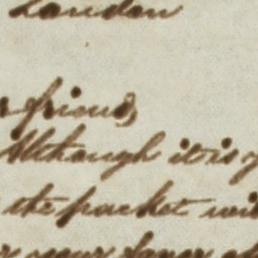 London
friend,
Although it is
the packet